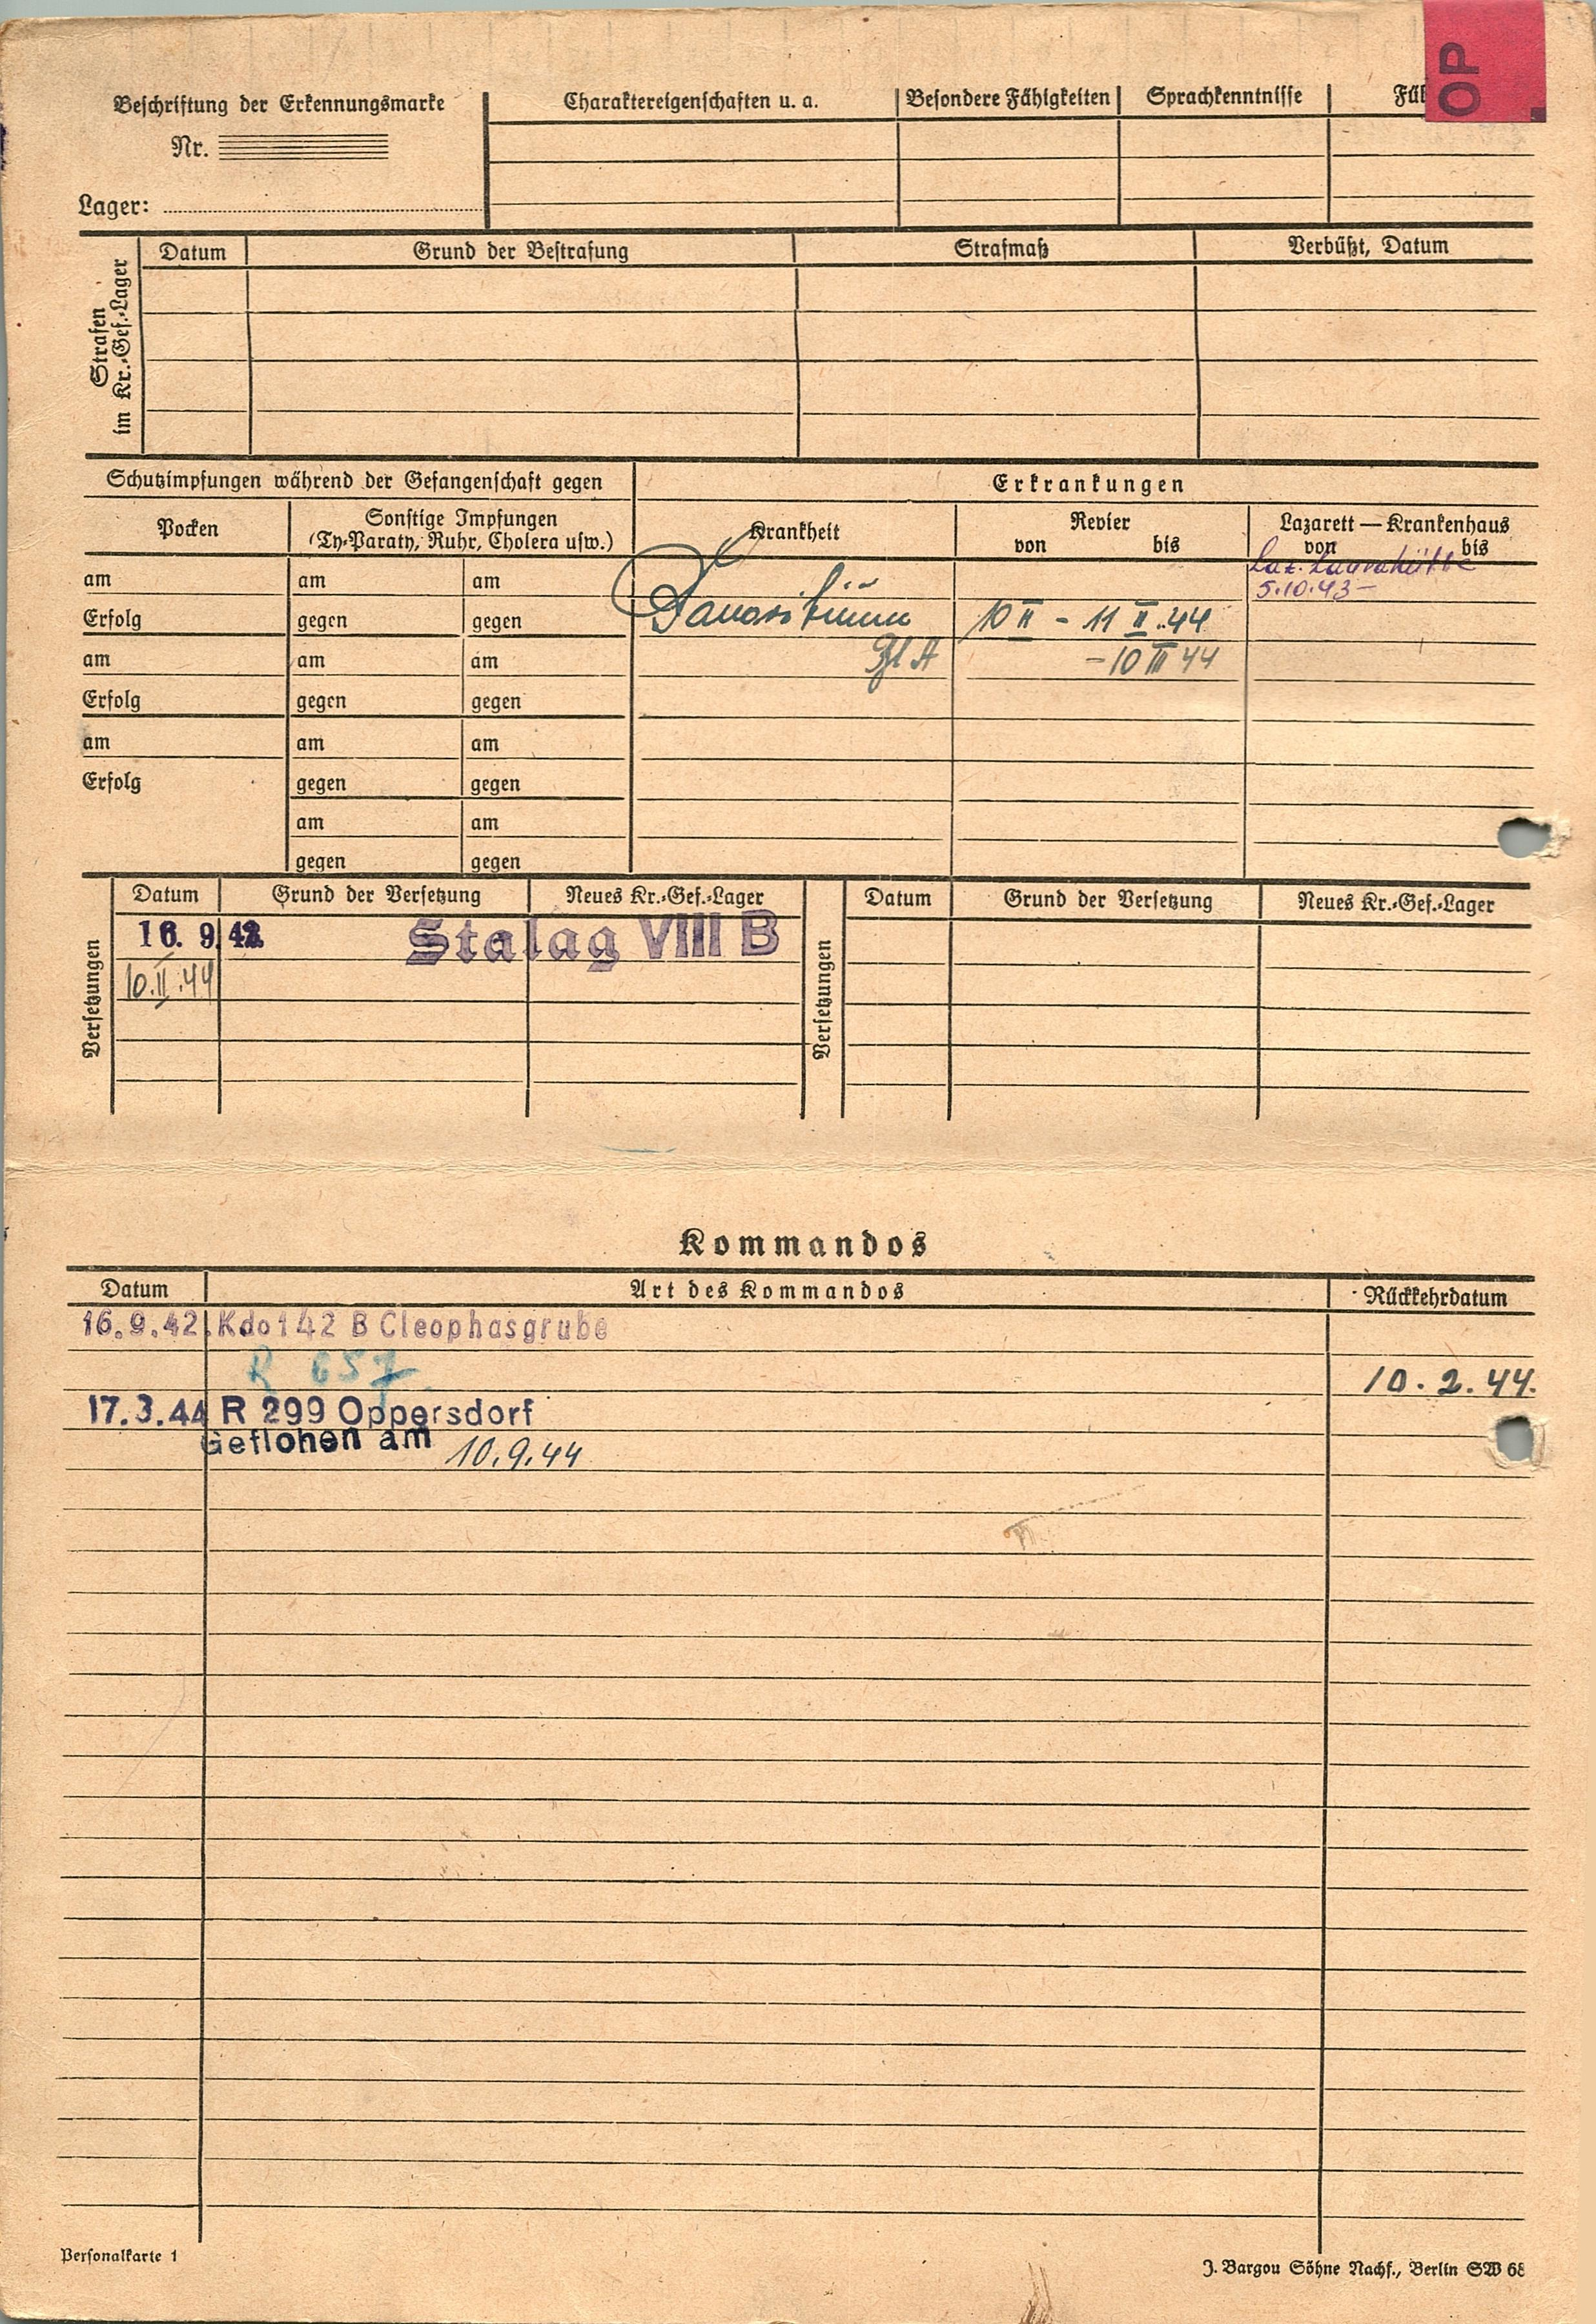 OP
Beschriftung der Erkennungsmarke
Nr.
Lager:
Charaktereigenschaften u. a.
Besondere Fähigkeiten
Sprachkenntnisse
Strafen
im Kr.-Gef.-Lager
Datum
Grund der Bestrafung
Strafmaß
Verbüßt, Datum
Schutzimpfungen während der Gefangenschaft gegen
Erkrankungen
Pocken
Sonstige Impfungen
(Ty-Paraty, Ruhr, Cholera usw.)
Krankheit
Revier
von bis
Lazarett — Krankenhaus
von bis
Laz. Laurahütte
am am am
5.10.43 –
Erfolg gegen gegen
10 II – 11 II .44
am am am
– 10 III 44
Erfolg gegen gegen
am am am
Erfolg gegen gegen
am am
gegen gegen
Versetzungen
Datum Grund der Versetzung Neues Kr.-Gef.-Lager
16. 9. 42 Stalag VIII B
10.II.44
Versetzungen
Datum Grund der Versetzung Neues Kr.-Gef.-Lager
Kommandos
Datum Art des Kommandos Rückkehrdatum
16.9.42. Kdo 142 B Cleophasgrube
R 657
10.2.44.
17.3.44 R 299 Oppersdorf
Geflohen am 10.9.44
Personalkarte 1
J. Bargou Söhne Nachf., Berlin SW 68